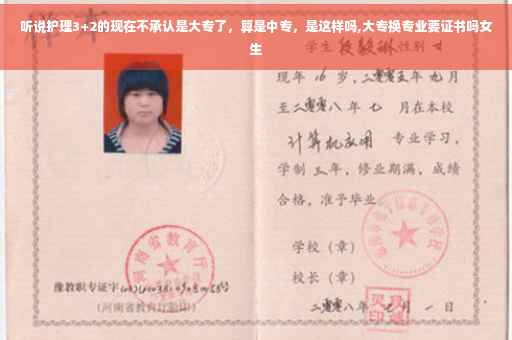 听说护理3+2的现在不承认是大专了，算是中专，是这样吗,大专换专业要证书吗女
生
学生 性别 女
现年 16 岁，二零零五年 九月
至二零零八年 七 月在本校
计算机应用 专业学习，
学制 三年，修业期满，成绩
合格，准予毕业
学校（章）
校长（章）
河南省教育厅
豫教职专证字
（河南省教育厅验印）
二零零八年 月 一 日